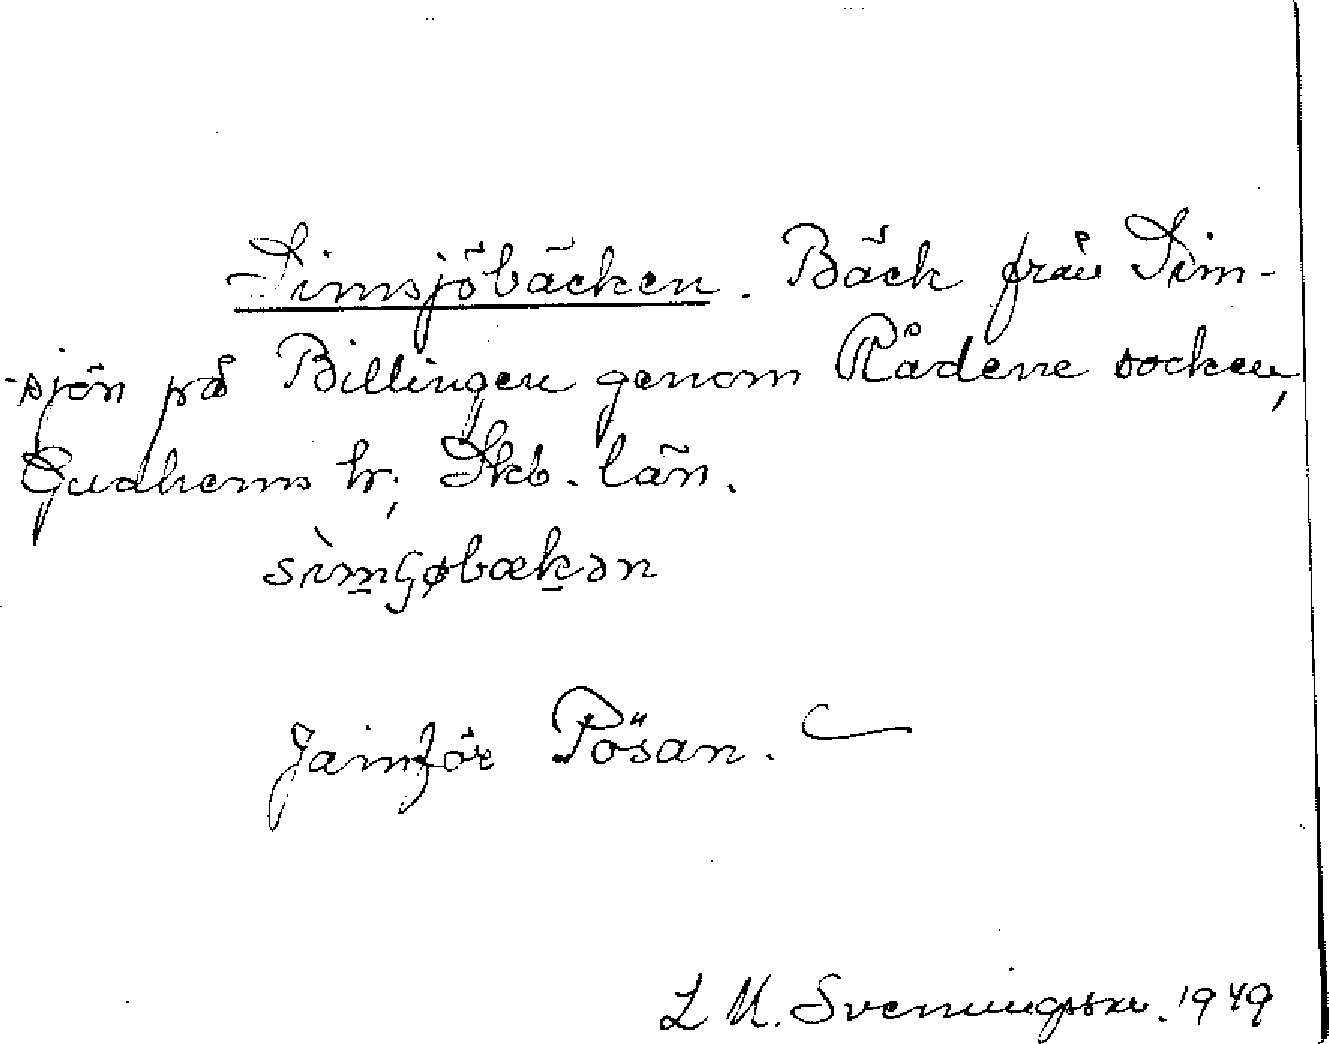 Simsjöbäcken. Bäck från Sim-
-sjön på Billingen genom Rådene socken,
Gudhems hr, Skb. län.
sìmɧøbækən
Jämför Pösan.
L M. Svenningsson. 1949